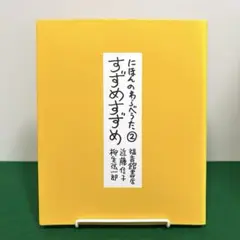 にほんのわらべうた②
すずめすずめ
福音館書店
近藤信子
柳生弦一郎